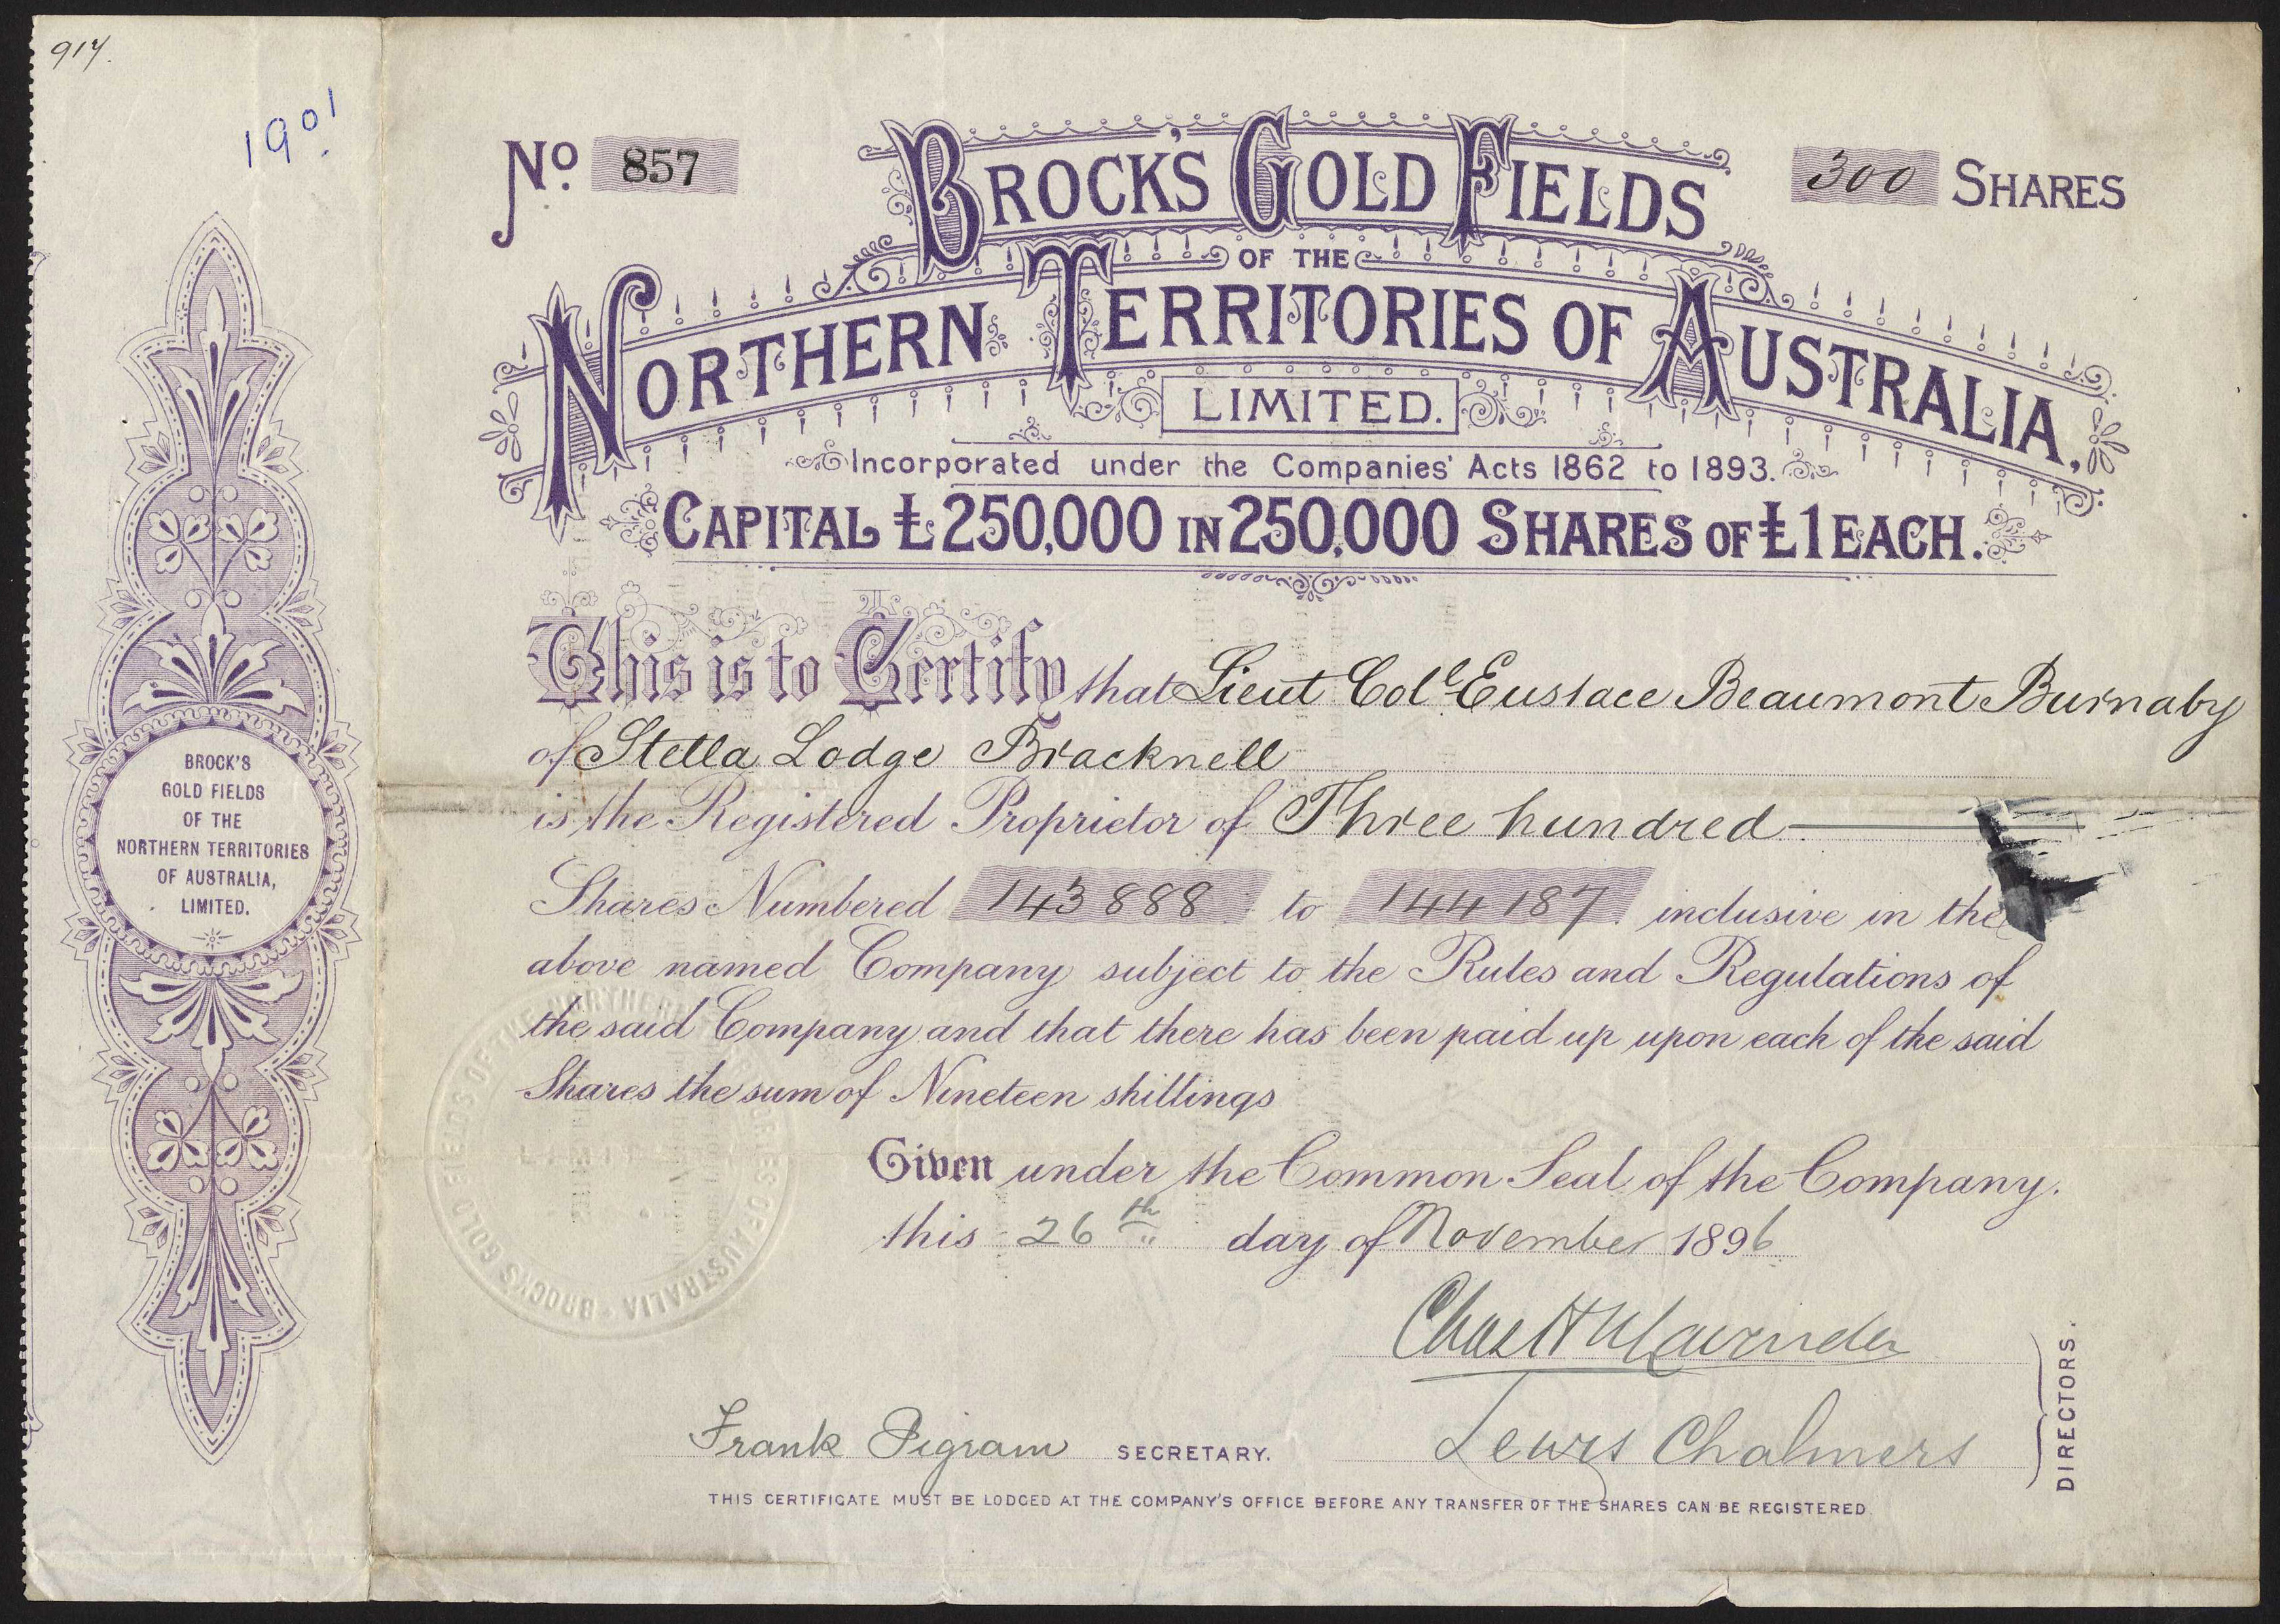 917.
1901
No. 857
BROCK'S GOLD FIELDS
300 SHARES
OF THE
NORTHERN TERRITORIES OF AUSTRALIA,
LIMITED.
Incorporated under the Companies' Acts 1862 to 1893.
CAPITAL £250,000 IN 250,000 SHARES OF £1 EACH.
This is to Certify that Lieut Coll Eustace Beaumont Burnaby
of Stella Lodge Bracknell
is the Registered Proprietor of Three hundred
Shares Numbered 143888 to 144187 inclusive in the
above named Company subject to the Rules and Regulations of
the said Company and that there has been paid up upon each of the said
Shares the sum of Nineteen shillings
Given under the Common Seal of the Company.
this 26th day of November 1896
Lewis Chalmers
DIRECTORS.
Frank Pigram SECRETARY.
THIS CERTIFICATE MUST BE LODGED AT THE COMPANY'S OFFICE BEFORE ANY TRANSFER OF THE SHARES CAN BE REGISTERED.
BROCK'S
GOLD FIELDS
OF THE
NORTHERN TERRITORIES
OF AUSTRALIA,
LIMITED.
BROCKS GOLD FIELDS OF THE NORTHERN TERRITORIES OF AUSTRALIA
LIMITED